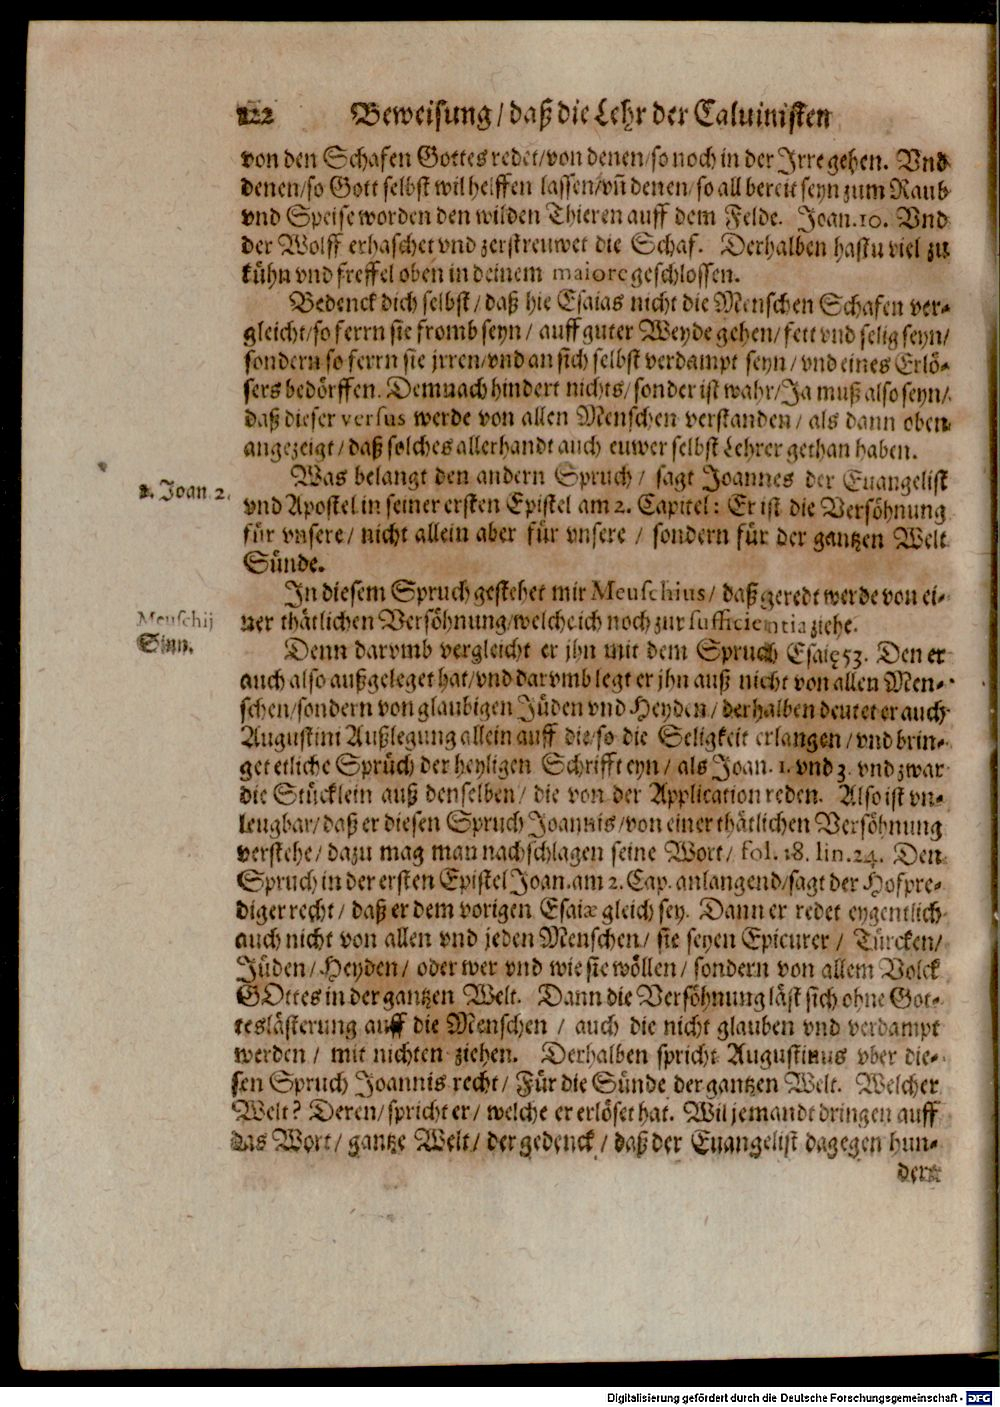 122 Beweisung / daß die Lehr der Caluinisten
von den Schafen Gottes redet / von denen / so noch in der Jrre gehen. Vnd
denen / so Gott selbst wil helffen lassen / vñ denen / so all bereit seyn zum Raub
vnd Speise worden den wilden Thieren auff dem Felde. Joan. 10. Vnd
der Wolff erhaschet vnd zerstreuwet die Schaf. Derhalben hastu viel zu
kühn vnd freffel oben in deinem maiore geschlossen.
Bedenck dich selbst / daß hie Esaias nicht die Menschen Schafen ver-
gleicht / so ferrn sie fromb seyn / auff guter Weyde gehen / fett vnd selig seyn /
sondern so ferrn sie jrren / vnd an sich selbst verdampt seyn / vnd eines Erlö-
sers bedörffen. Demnach hindert nichts / sonder ist wahr / Ja muß also seyn /
daß dieser versus werde von allen Menschen verstanden / als dann oben
angezeigt / daß solches allerhandt auch euwer selbst Lehrer gethan haben.
Was belangt den andern Spruch / sagt Joannes der Euangelist
1. Joan. 2.
vnd Apostel in seiner ersten Epistel am 2. Capitel: Er ist die Versöhnung
für vnsere / nicht allein aber für vnsere / sondern für der gantzen Welt
Sünde.
In diesem Spruch gestehet mir Meuschius / daß geredt werde von ei-
Meuschij
ner thätlichen Versöhnung / welche ich noch zur sufficientia ziehe.
Sinn.
Denn darvmb vergleicht er jhn mit dem Spruch Esaię 53. Den er
auch also außgeleget hat / vnd darvmb legt er jhn auß nicht von allen Men-
schen / sondern von glaubigen Jüden vnd Heyden / derhalben deutet er auch
Augustini Außlegung allein auff die / so die Seligkeit erlangen / vnd brin-
get etliche Sprüch der heyligen Schrifft eyn / als Joan. 1. vnd 3. vnd zwar
die Stücklein auß denselben / die von der Application reden. Also ist vn-
leugbar / daß er diesen Spruch Joannis / von einer thätlichen Versöhnung
verstehe / dazu mag man nachschlagen seine Wort / fol. 18. lin. 24. Den
Spruch in der ersten Epistel Joan. am 2. Cap. anlangend / sagt der Hofpre-
diger recht / daß er dem vorigen Esaiæ gleich sey. Dann er redet eygentlich
auch nicht von allen vnd jeden Menschen / sie seyen Epicurer / Türcken /
Jüden / Heyden / oder wer vnd wie sie wöllen / sondern von allem Volck
GOttes in der gantzen Welt. Dann die Versöhnung läst sich ohne Got-
teslästerung auff die Menschen / auch die nicht glauben vnd verdampt
werden / mit nichten ziehen. Derhalben spricht Augustinus vber die-
sen Spruch Joannis recht / Für die Sünde der gantzen Welt. Welcher
Welt? Deren / spricht er / welche er erlöset hat. Wil jemandt dringen auff
das Wort / gantze Welt / der gedenck / daß der Euangelist dagegen hun-
dert
Digitalisierung gefördert durch die Deutsche Forschungsgemeinschaft - DFG